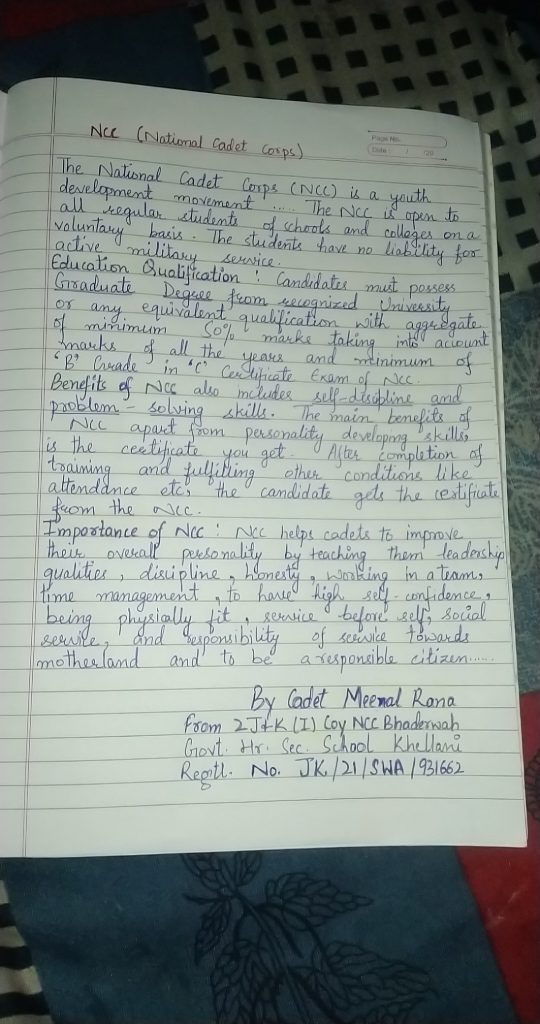 NCC (National Cadet Corps)
Page No.
Date: / /20
The National Cadet Corps (NCC) is a youth
development movement ..... The NCC is open to
all regular students of schools and colleges on a
voluntary basis. The students have no liability for
active military service.
Education Qualification : Candidates must possess
Graduate Degree from recognized University
or any equivalent qualification with aggregate
of minimum 50% marks taking into account
marks of all the years and minimum of
'B' Grade in 'C' Certificate Exam of NCC.
Benefits of NCC also includes self-discipline and
problem - solving skills. The main benefits of
NCC apart from personality developing skills,
is the certificate you get. After completion of
training and fulfilling other conditions like
attendance etc, the candidate gets the certificate
from the NCC.
Importance of NCC : NCC helps cadets to improve
their overall personality by teaching them leadership
qualities, discipline, honesty, working in a team,
time management, to have high self-confidence,
being physically fit, service before self, social
service, and responsibility of service towards
motherland and to be a responsible citizen......
By Cadet Meenal Rana
From 2 J&K (I) Coy NCC Bhaderwah
Govt. Hr. Sec. School Khellani
Regtl. No. JK/21/SWA/931662